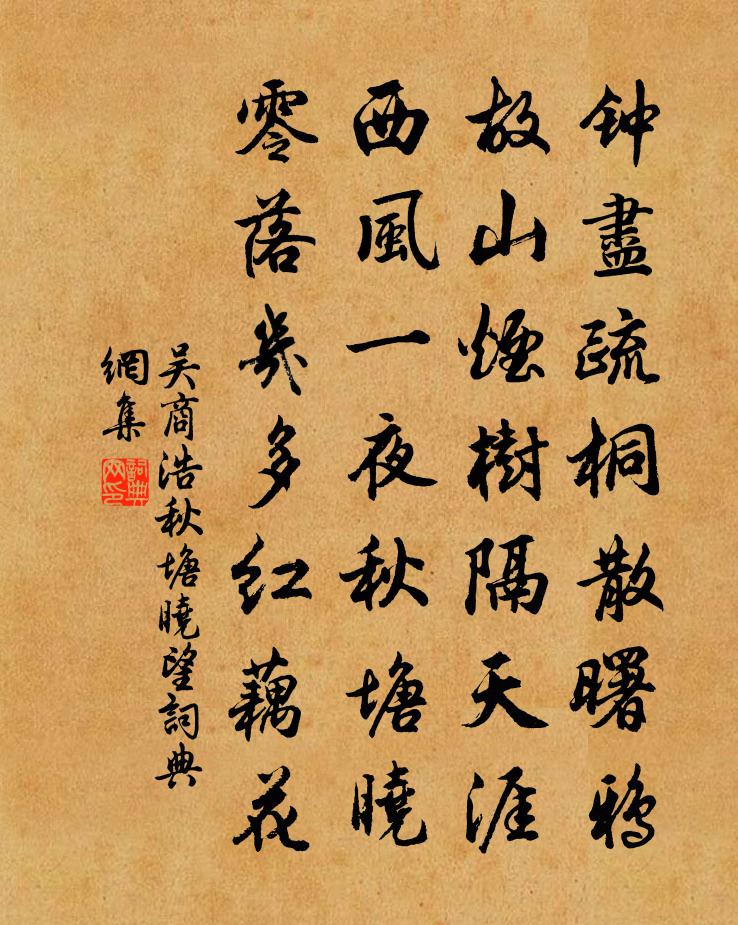 钟盡疏桐散曙鴉
故山煙樹隔天涯
西風一夜秋塘曉
零落幾多红藕花
吴商浩秋塘曉望詞典
網集
詞典
网印